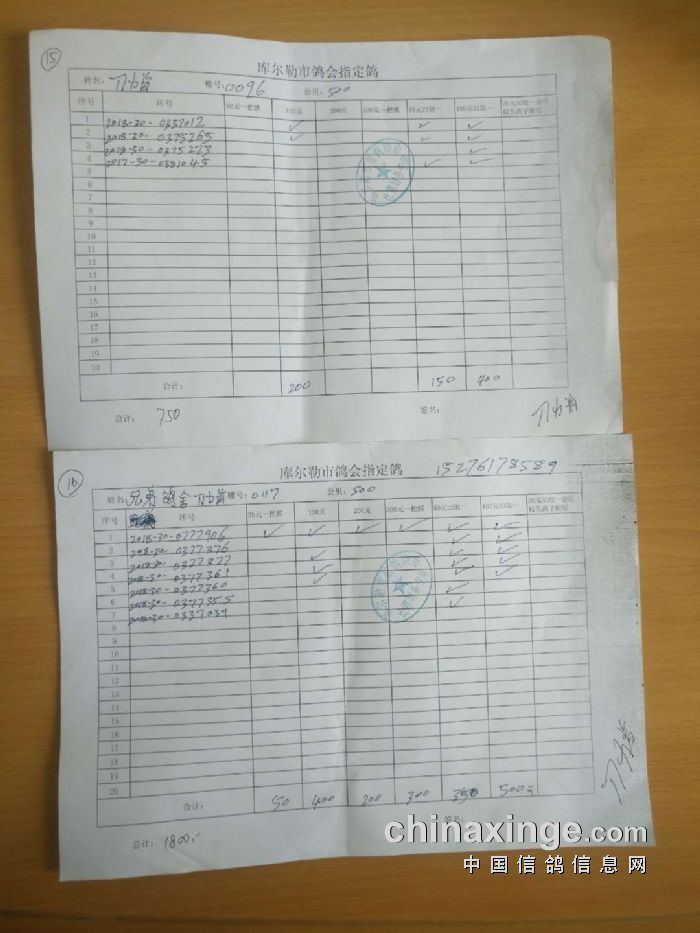 15
库尔勒市鸽会指定鸽
姓名: 棚号: 0096 公里: 500
序号 环号 50元一把抓 100元 200元 300元一把抓 50元22取一 100元22取一
1 2018-30-0337012 ✓ ✓ ✓
2 2018-30-0375265 ✓ ✓ ✓
3 2018-30-0375273 ✓
4 2017-30-0381045 ✓ ✓
5
6
7
8
9
10
11
12
13
14
15
16
17
18
19
20
合计: 200 150 400
总计: 750 签名:
16
库尔勒市鸽会指定鸽 15276178589
姓名: 兄弟鸽舍 棚号: 0117 公里: 500
序号 环号 50元一把抓 100元 200元 300元一把抓 50元22取一 100元22取一
1 2018-30-0777906 ✓ ✓ ✓ ✓ ✓ ✓
2 2018-30-0377376 ✓ ✓
3 2018-30-0377377 ✓ ✓ ✓
4 2018-30-0377361 ✓ ✓ ✓
5 2018-30-0377360 ✓
6 2018-30-0377355 ✓
7 2018-30-0337039
8
9
10
11
12
13
14
15
16
17
18
19
20
合计: 50 400 200 300 350 500元
总计: 1800.- 签名:
chinaxinge.com
中国信鸽信息网